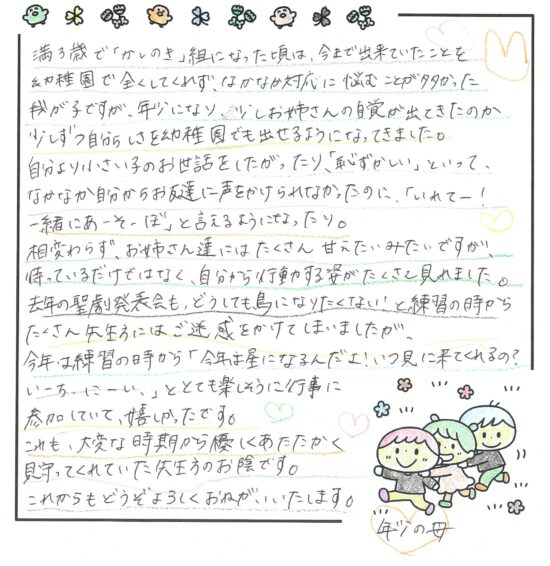 満3歳で「かしのき」組になった頃は、今まで出来ていたことを
幼稚園で全くしてくれず、なかなか対応に悩むことが多かった
我が子ですが、年少になり、少しお姉さんの自覚が出てきたのか
少しずつ自分らしさを幼稚園でも出せるようになってきました。
自分より小さい子のお世話をしたがったり、「恥ずかしい」といって、
なかなか自分からお友達に声をかけられなかったのに、「いれてー!
一緒にあーそーぼ」と言えるようになったり。
相変わらず、お姉さん達にはたくさん甘えたいみたいですが、
待っているだけではなく、自分から行動する姿がたくさん見れました。
去年の聖劇発表会も、どうしても鳥になりたくない!と練習の時から
たくさん先生方にはご迷惑をかけてしまいましたが、
今年は練習の時から「今年は星になるんだよ!いつ見に来てくれるの?
いーち、にーい、」ととても楽しそうに行事に
参加していて、嬉しかったです。
これも、大変な時期から優しくあたたかく
見守ってくれていた先生方のお陰です。
これからもどうぞよろしくおねがいいたします。
年少の母